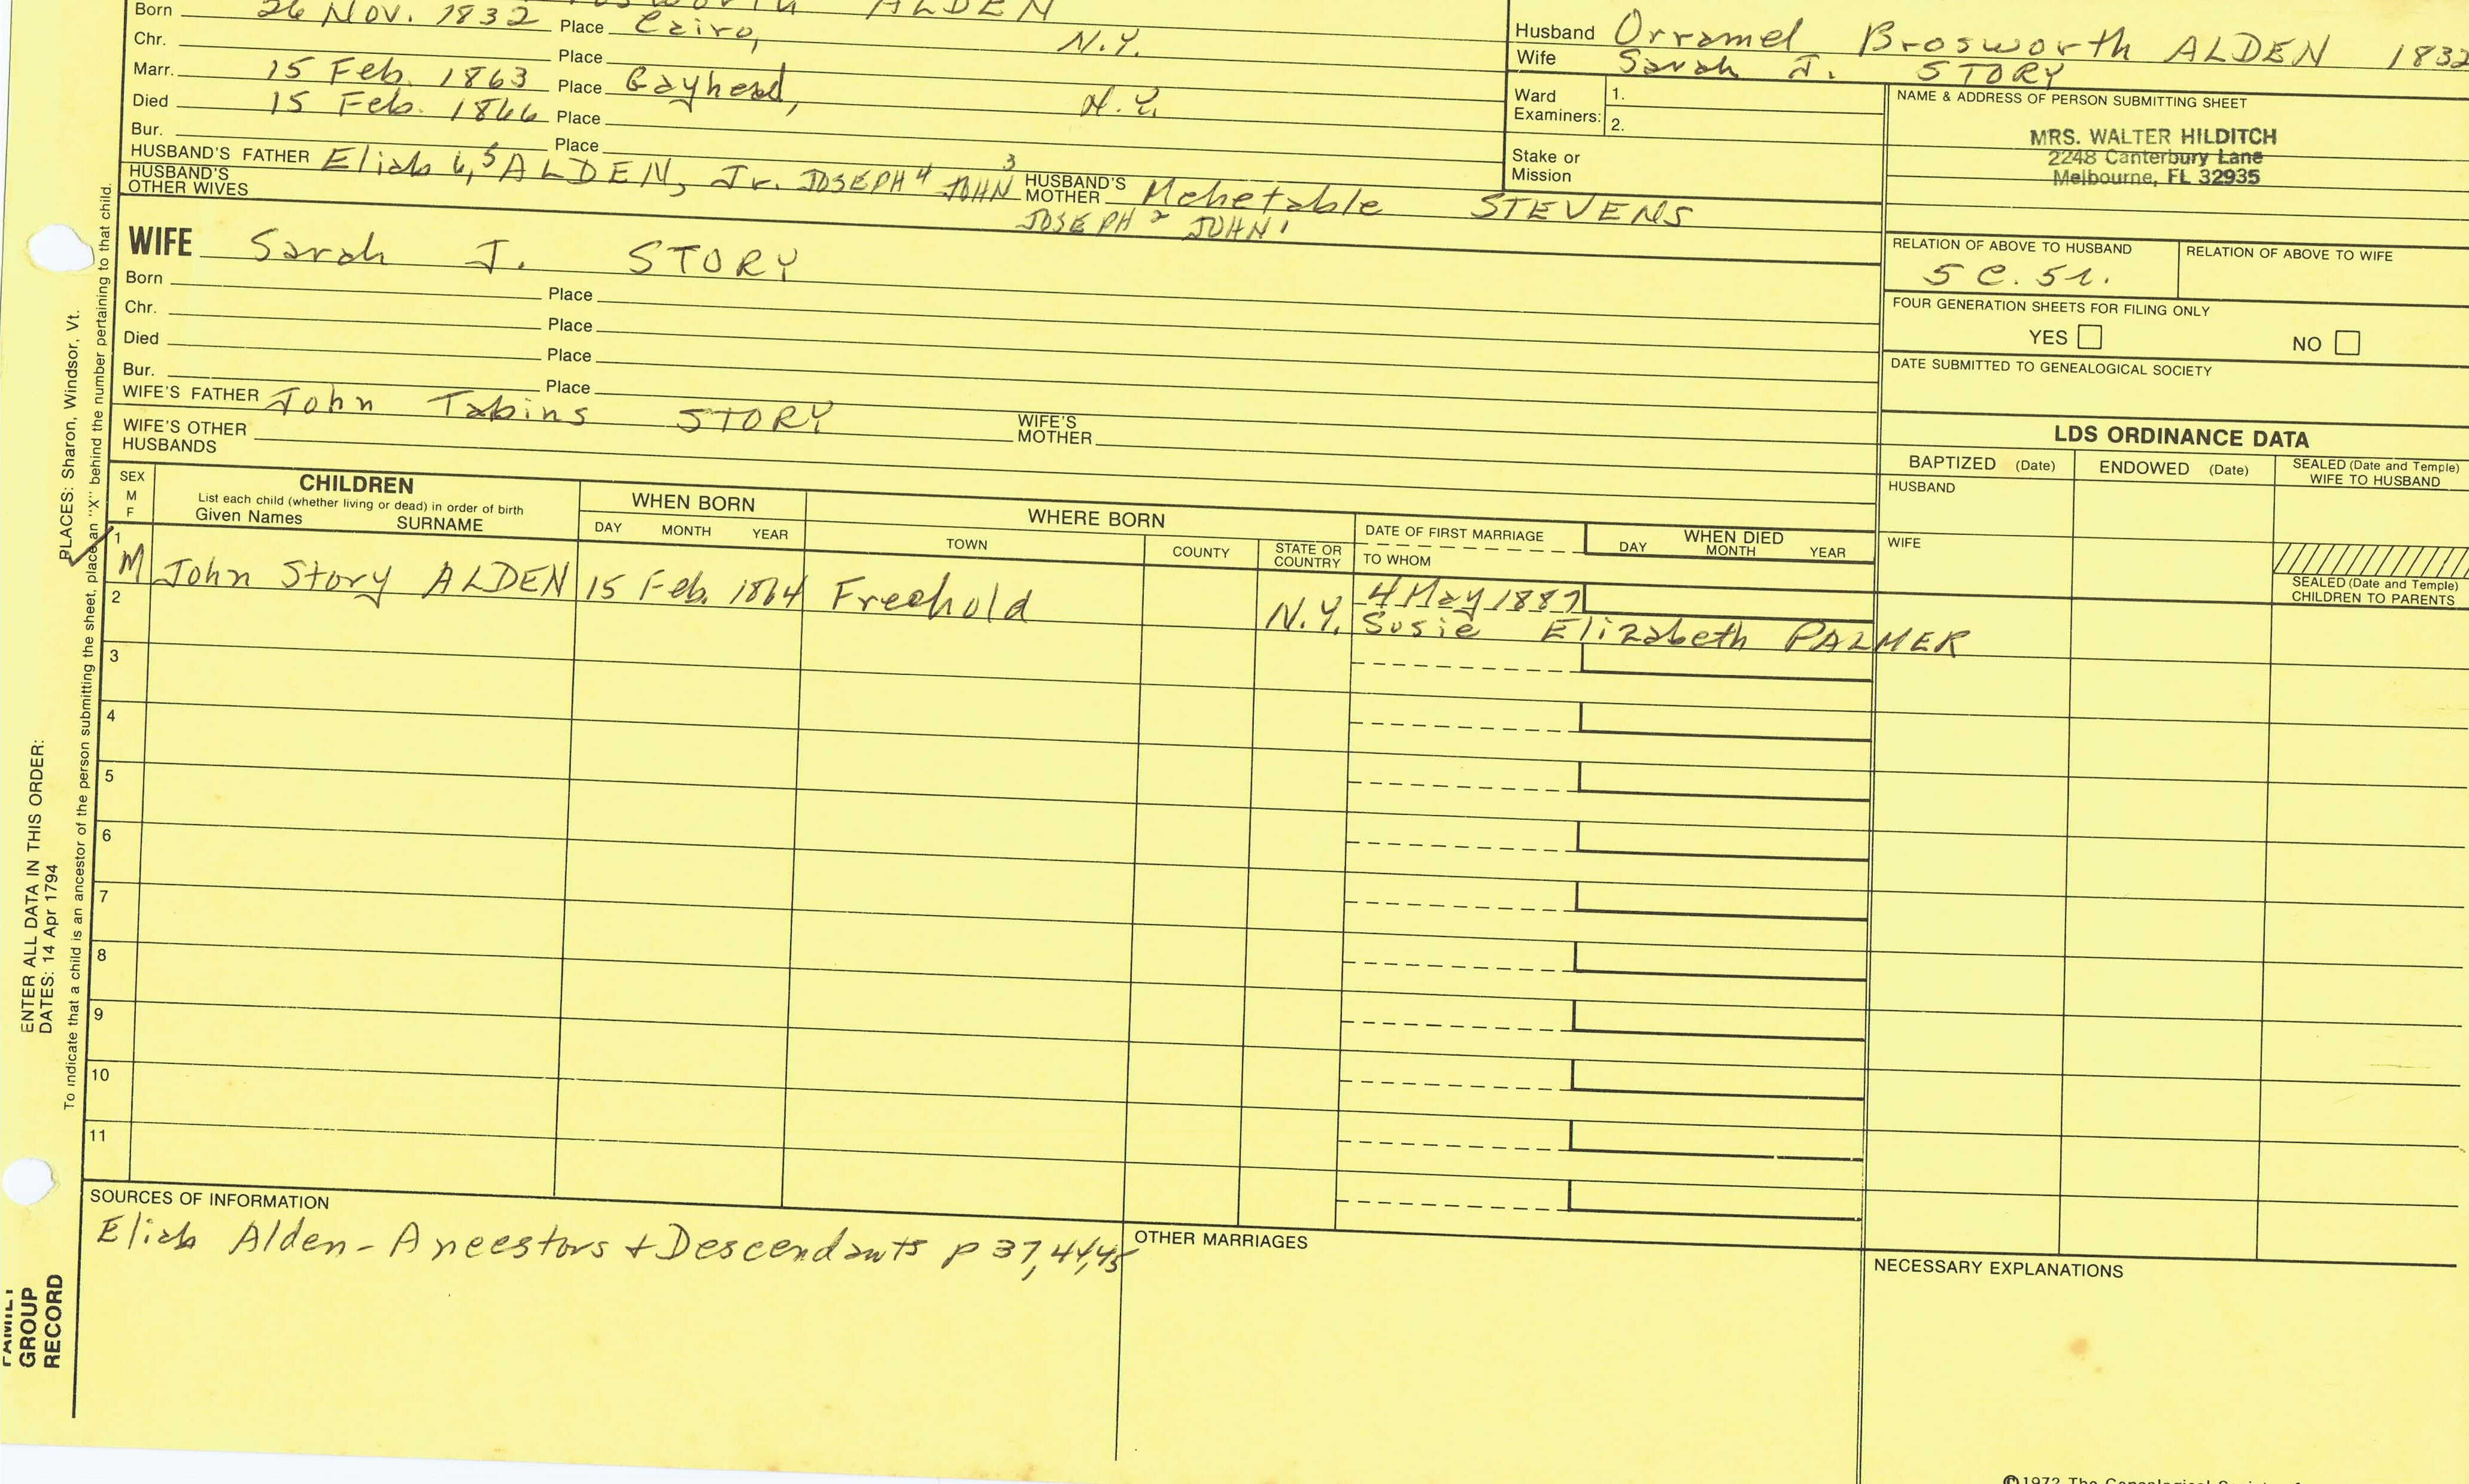 ALDEN
Born 26 Nov. 1832 Place Cairo, N.Y.
Chr. Place
Marr. 15 Feb. 1863 Place Gayhead, N.Y.
Died 15 Feb. 1866 Place
Bur. Place
HUSBAND'S FATHER Eliab 6,5 ALDEN, Jr. JOSEPH 4 JOHN 3 HUSBAND'S MOTHER Mehetable STEVENS
HUSBAND'S OTHER WIVES JOSEPH 2 JOHN 1
Husband Orramel Brosworth ALDEN 1832
Wife Sarah J. STORY
Ward Examiners: 1.
2.
Stake or Mission
NAME & ADDRESS OF PERSON SUBMITTING SHEET
MRS. WALTER HILDITCH
2248 Canterbury Lane
Melbourne, FL 32935
RELATION OF ABOVE TO HUSBAND
5 C. 5r.
RELATION OF ABOVE TO WIFE
FOUR GENERATION SHEETS FOR FILING ONLY
YES NO
DATE SUBMITTED TO GENEALOGICAL SOCIETY
WIFE Sarah J. STORY
Born Place
Chr. Place
Died Place
Bur. Place
WIFE'S FATHER John Tabins STORY WIFE'S MOTHER
WIFE'S OTHER HUSBANDS
LDS ORDINANCE DATA
BAPTIZED (Date) ENDOWED (Date) SEALED (Date and Temple) WIFE TO HUSBAND
HUSBAND
WIFE
SEALED (Date and Temple) CHILDREN TO PARENTS
SEX M F
CHILDREN
List each child (whether living or dead) in order of birth
Given Names SURNAME
WHEN BORN
DAY MONTH YEAR
WHERE BORN
TOWN COUNTY STATE OR COUNTRY
DATE OF FIRST MARRIAGE
TO WHOM
WHEN DIED
DAY MONTH YEAR
1
M John Story ALDEN 15 Feb. 1864 Freehold N.Y. 4 May 1887
Susie Elizabeth PALMER
2
3
4
5
6
7
8
9
10
11
SOURCES OF INFORMATION
Eliab Alden - Ancestors + Descendants p 37, 44, 45
OTHER MARRIAGES
NECESSARY EXPLANATIONS
PLACES: Sharon, Windsor, Vt.
To indicate that a child is an ancestor of the person submitting the sheet, place an "X" behind the number pertaining to that child.
ENTER ALL DATA IN THIS ORDER:
DATES: 14 Apr 1794
FAMILY
GROUP
RECORD
©1972 The Genealogical Society